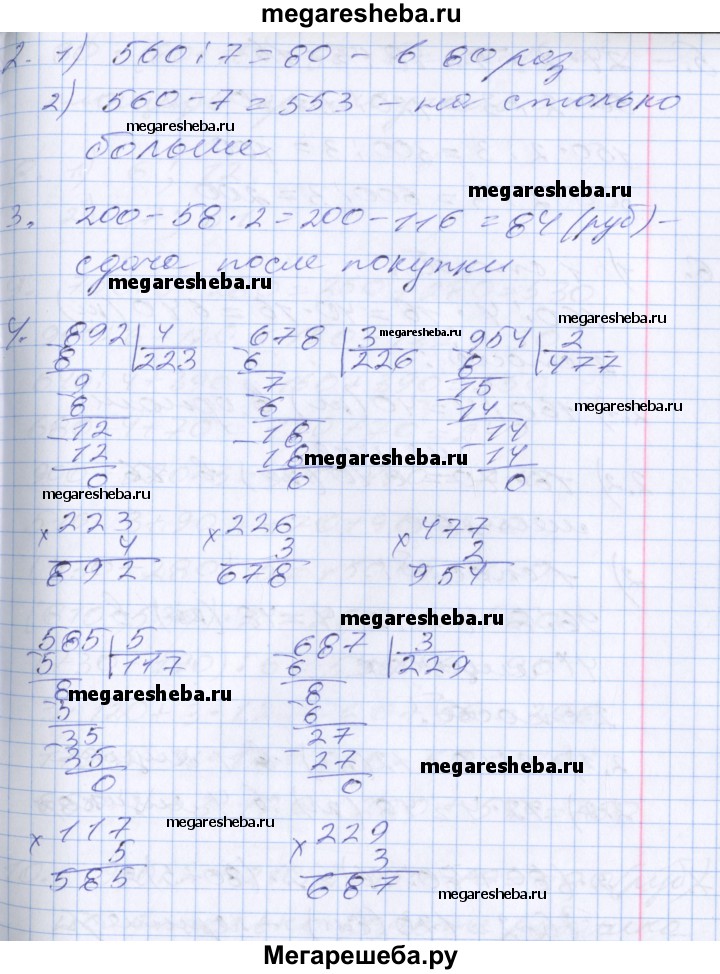 megaresheba.ru
2. 1) 560 : 7 = 80 - в 80 раз
2) 560 - 7 = 553 - на столько
megaresheba.ru
больше
megaresheba.ru
3. 200 - 58 · 2 = 200 - 116 = 84 (руб) -
сдача после покупки
megaresheba.ru
4. 892 | 4 678 | 3 megaresheba.ru 954 | 2
8 223 6 226 8 477
9 7 15
8 6 14 megaresheba.ru
12 18 14
12 18 megaresheba.ru 14
0 0 0
megaresheba.ru
× 223 × 226 × 477
4 3 2
892 678 954
megaresheba.ru
585 | 5 687 | 3
5 117 6 229
8 megaresheba.ru 8
5 6
35 27
35 27 megaresheba.ru
0 0
× 117 megaresheba.ru × 229
5 3
585 687 megaresheba.ru
Мегарешеба.ру